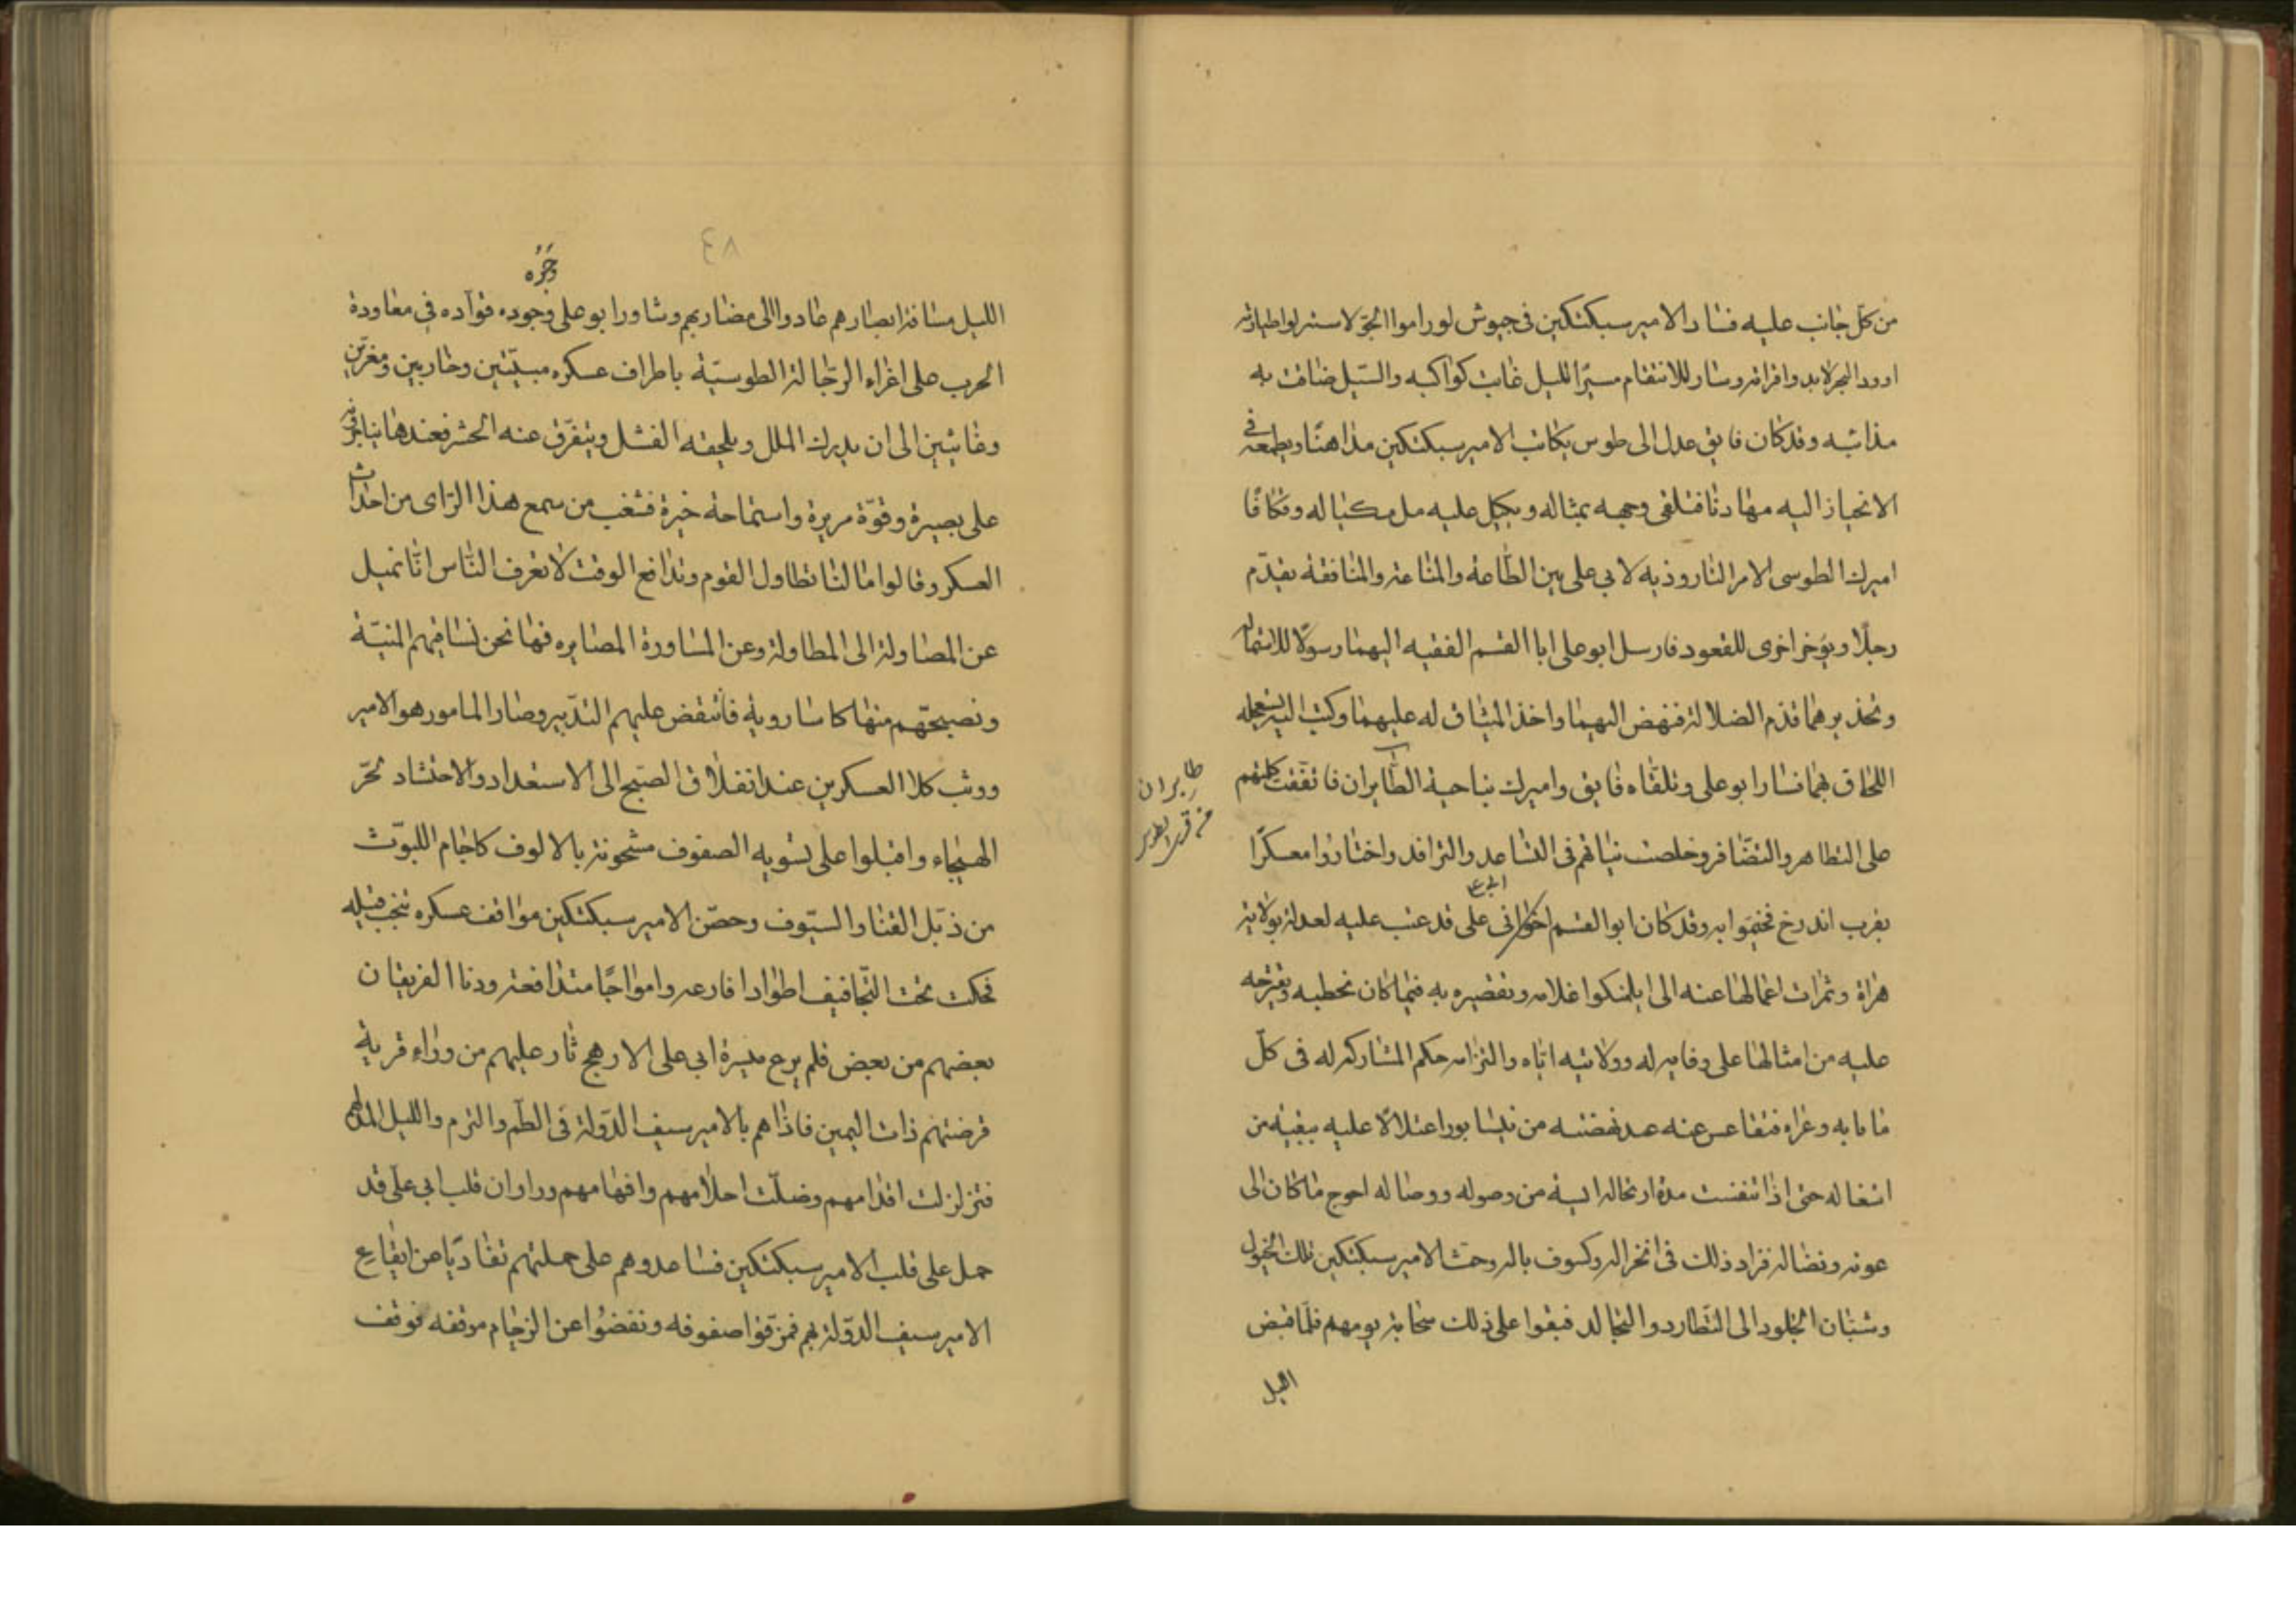 من كلّ جانب عليه فسار الامير سبكتكين فى جيوش لو راموا الجوّ لاستنزلوا اطياره
اووردا البحر لابدوا قراره وسار للانتقام مسير الليل غابت كواكبه والسيل ضاقت به
مذانبه وقد كان فايق عدل الى طوس يكاتب الامير سبكتكين مداهنًا ويطمعه فى
الانحياز اليه مهادنا فتلقى وجهه بمثاله ويكيل عليه مل مكياله وتكافا
اميرك الطوسى الامر التاروذيه لابى على بين الطاعة والمتاعة والمنافقة يقدّم
رجلًا ويؤخر اخرى للقعود فارسل ابو على ابا القسم الفقيه اليهما رسولًا للاستمالة
وتحذيرهما قدم الضلالة فنهض اليهما واخذ الميثاق له عليهما وكتب اليه يستعجله
اللحاق بهما فسار ابو على وتلقاه فايق واميرك بناحية الطابران فاتفقت كلمتهم
طابران
من قرى طوس
على التظاهر والتضافر وخلصت نياتهم فى التساعد والترافد واختاروا معسكرًا
بقرب اندرخ فخيموا به وقد كان ابو القسم اخو ابى على قد عتب عليه لعدله بولاية
هراة وثمرات اعمالها عنه الى ايلمنكوا غلامه وتقصيره به فيما كان يخطبه ويقترحه
عليه من امثالها على وفايه له وولايته اياه والتزامه حكم المشاركة له فى كلّ
ما نابه وعراه فتقاعس عنه عند نهضته من نيسابور اعتلالًا عليه ببقية من
اشغاله حتى اذا تنفست مدة ارتحاله اليه من وصوله ووصاله احوج ما كان الى
عونه ونضاله فزاد ذلك فى انخزاله وكسوف باله وحث الامير سبكتكين تلك الخيول
وشبان الجلود الى التطارد والتجالد فبقوا على ذلك سحابة يومهم فلما قبض
الليل
٤٨
وجوه
الليل مسافة ابصارهم عادوا الى مضاربهم وشاور ابو على وجوده قوآده فى معاودة
الحرب على اغراء الرجّالة الطوسيّة باطراف عسكره مبيّتين وحاربين ومغيرين
وعائثين الى ان يدركه الملل ويلحقه الفشل ويتفرّق عنه الحشر فعندها يناجزه
على بصيرة وقوّة مريرة واستماحة خيرة فشغب من سمع هذا الرّاى من احداث
العسكر وقالوا ما لنا نطاول القوم وندافع الوقت لا تعرف النّاس انّا نميل
عن المصاولة الى المطاولة وعن المساورة المصابره فها نحن نساقيهم المنيّة
ونصبحهم منها كاسا روية فانتقض عليهم التدبير وصار المامور هو الامير
ووثب كلا العسكرين عند انفلاق الصبح الى الاستعداد والاحتشاد لحرّ
الهيجاء واقبلوا على تسويه الصفوف مشحونة بالالوف كاجام الليوث
من ذبّل القنا والسيوف وحصّن الامير سبكتكين مواقف عسكره بنخب فيله
فحكت تحت التجافيف اطوادا فارعه وامواجًا متدافعة ودنا الفريقان
بعضهم من بعض فلم يرع ميسرة ابى على الا رهج ثار عليهم من وراء قرية
فرضتهم ذات اليمين فاذا هم بالامير سيف الدولة فى الطم والرم والليل المدلهم
فتزلزلت اقدامهم وضلّت احلامهم وافهامهم وراوا ان قلب ابى على قد
حمل على قلب الامير سبكتكين فساعدوهم على حملتهم تفاديا عن ايقاع
الامير سيف الدولة بهم فمزقوا صفوفه ونفضوا عن الزحام موقفه فوقف